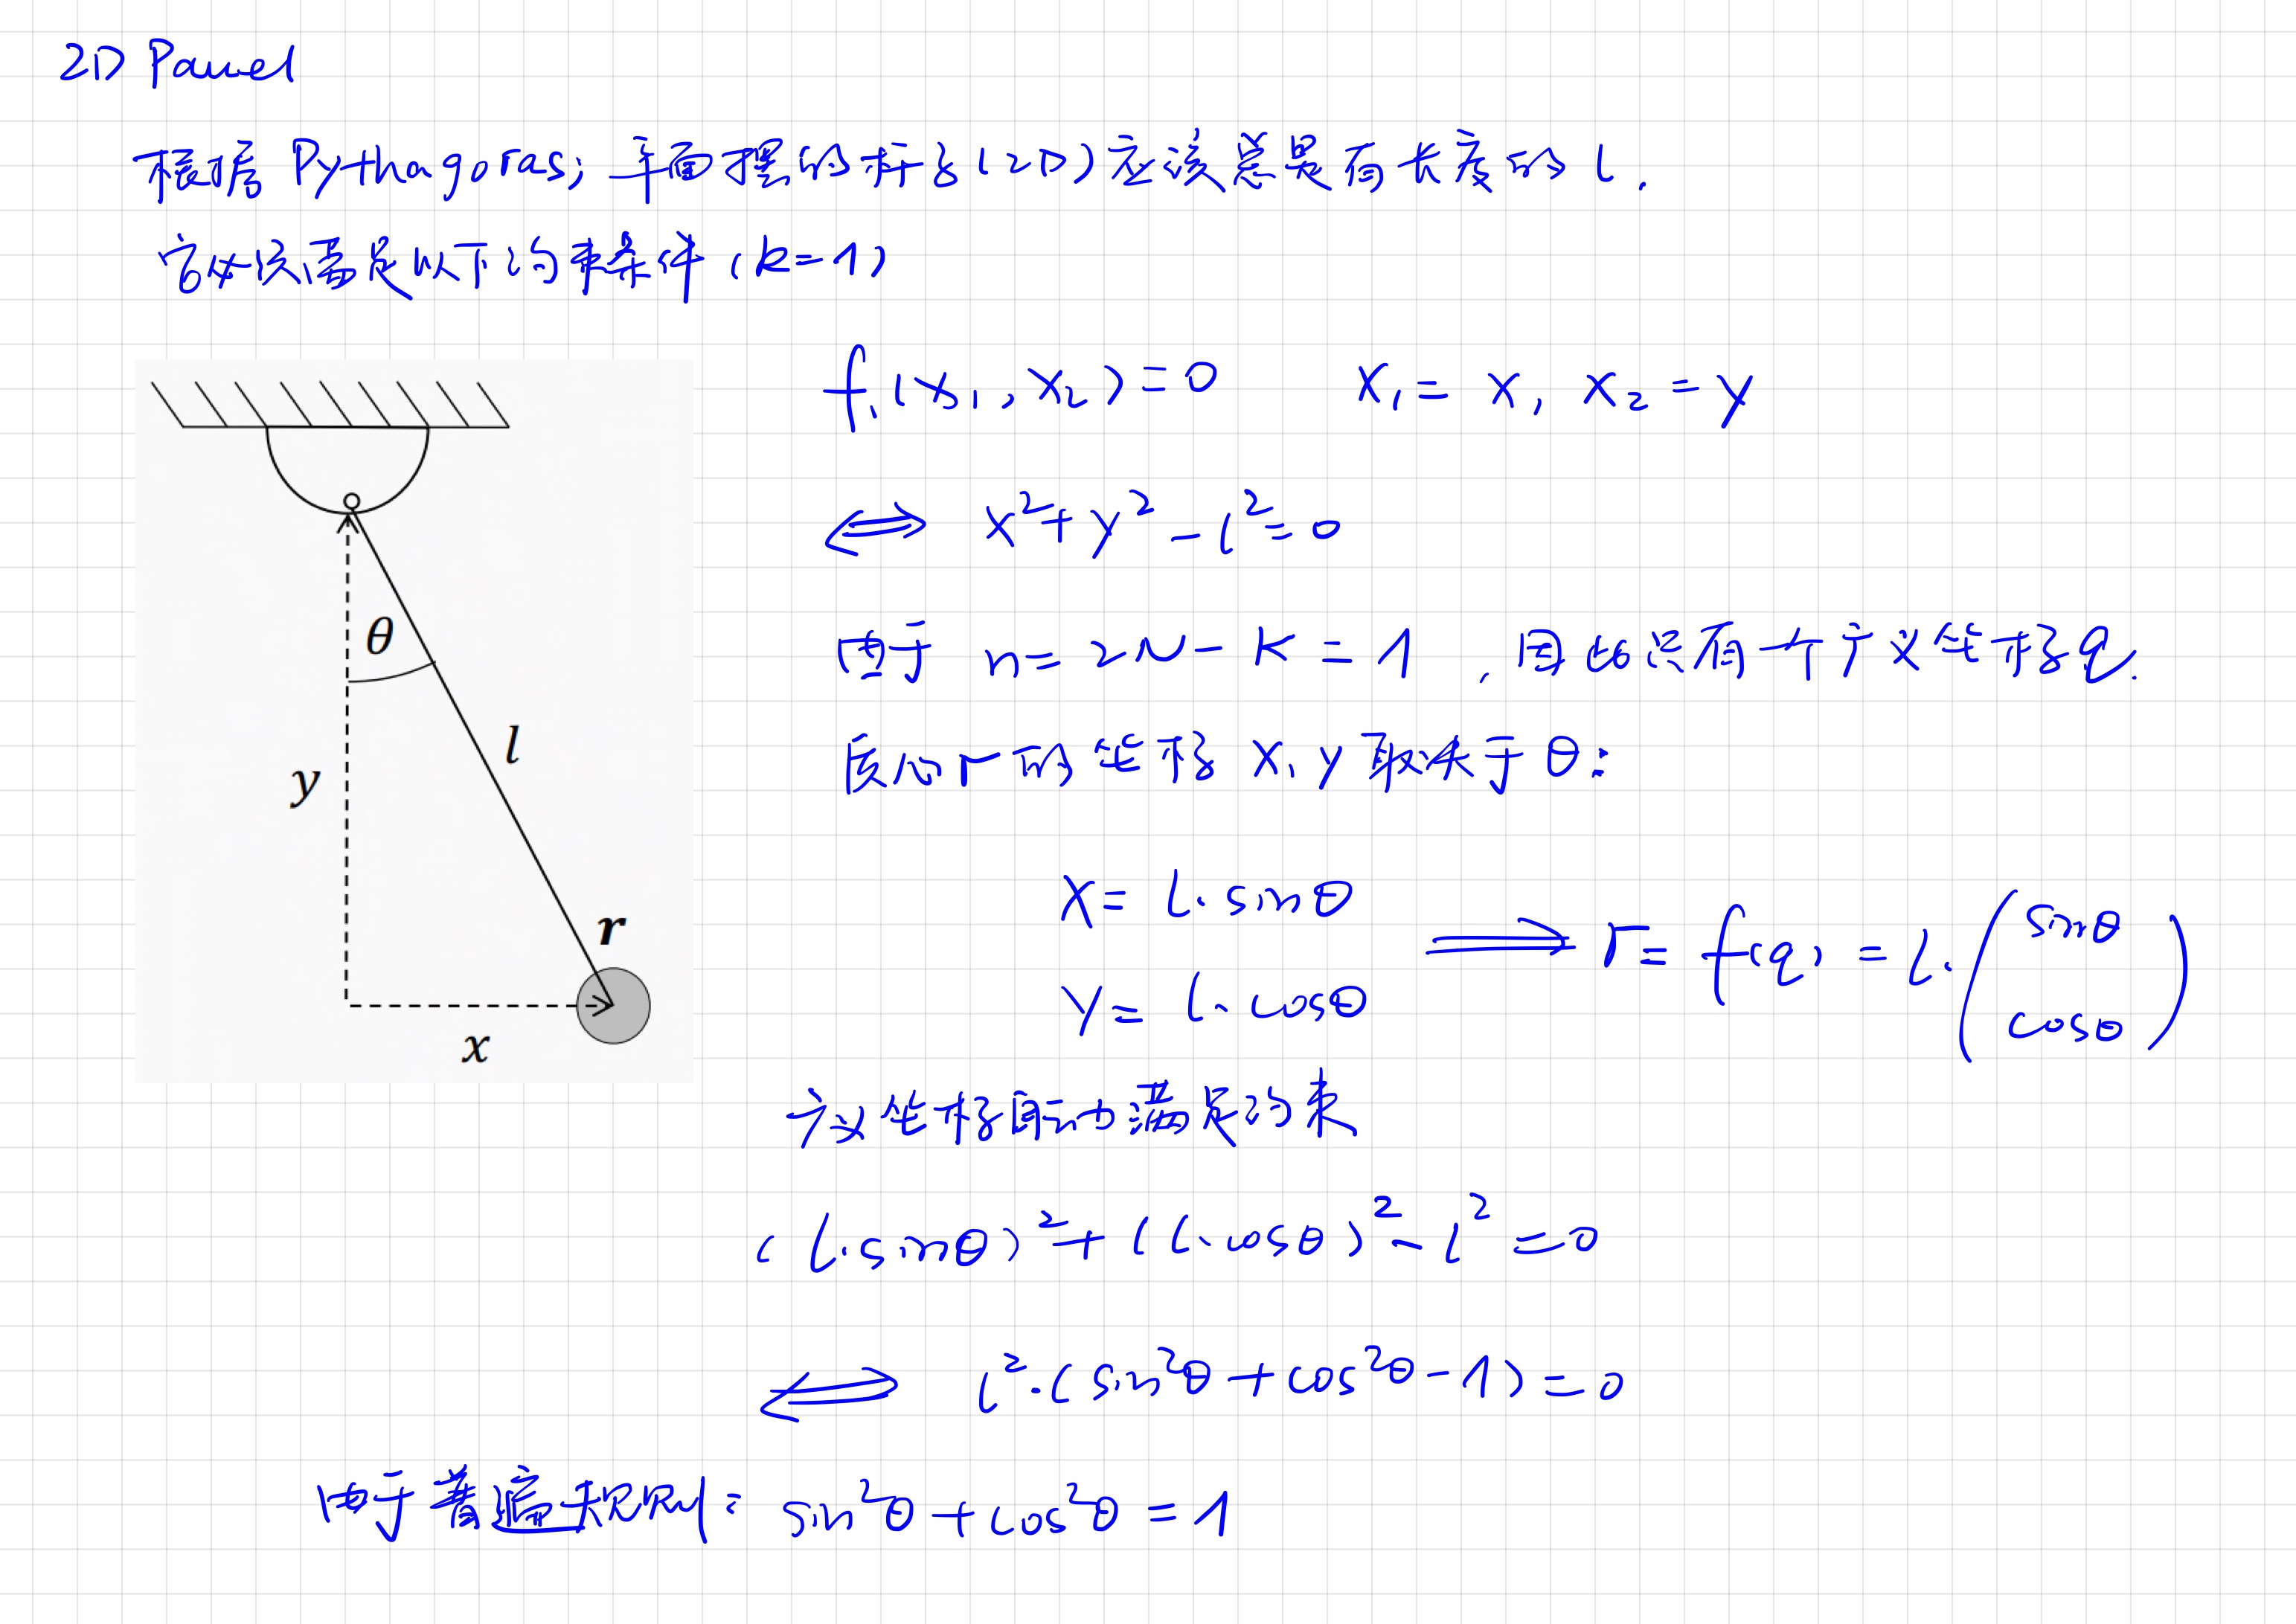 2D Pawel
根据 Pythagoras, 平面摆的杆子(2D)应该总是有长度的 l.
它必须满足以下约束条件 (k=1)
f₁(x₁, x₂)=0 x₁= x, x₂ = y
⟺ x²+y²-l²=0
θ
由于 n= 2N-K=1, 因此没有一个广义坐标 q.
l
y
质心 r 的坐标 x, y 取决于 θ:
r
x
X= l·sinθ
Y= l·cosθ
⟹ r= f(q) = l·(sinθ cosθ)
广义坐标自动满足约束
(l·sinθ)²+(l·cosθ)²-l²=0
⟺ l²·(sin²θ+cos²θ-1)=0
由于普遍规则: sin²θ+cos²θ=1